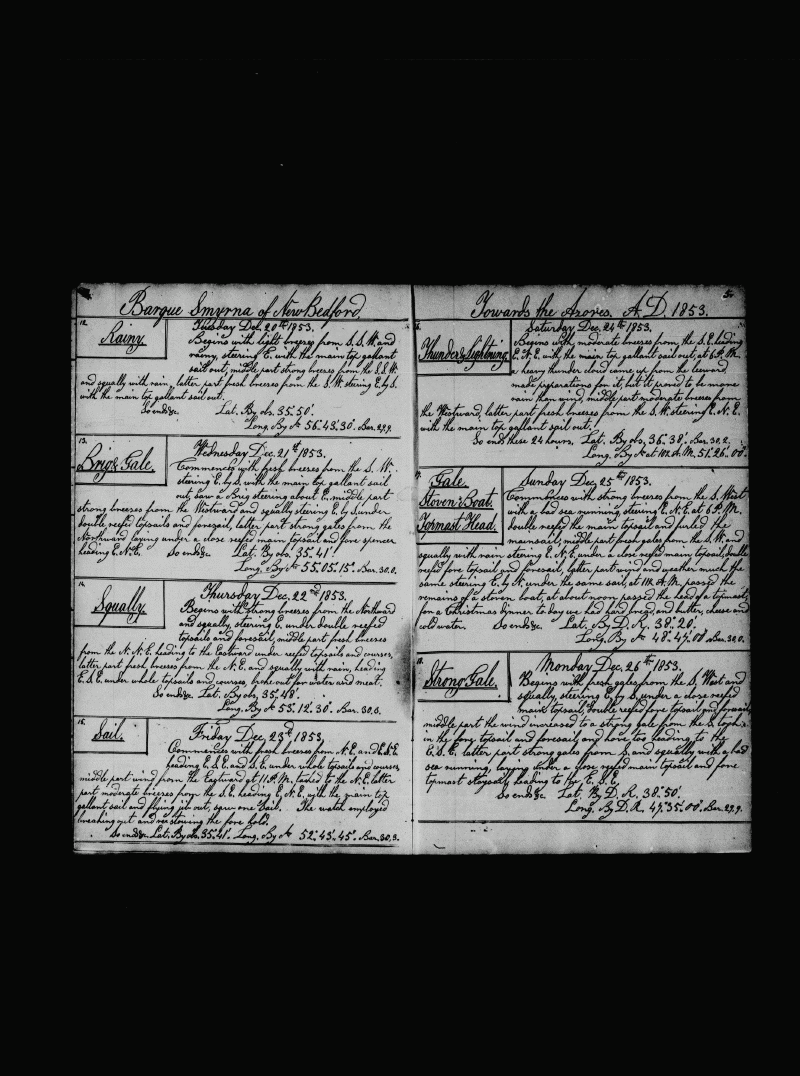 Barque Smyrna of New Bedford
12.
Rainy.
Tuesday Dec. 20th 1853.
Begins with light breezes from S.S.W. and
rainy, steering E. with the main top gallant
sail out, middle part strong breezes from the S.S.W.
and squally with rain, latter part fresh breezes from the S.W. steering E. by S.
with the main top gallant sail out.
So ends &c. Lat. By obs. 35° 50'.
Long. By Ac 56° 43' 30" Bar. 29.9.
13.
Brig & Gale.
Wednesday Dec. 21st 1853.
Commences with fresh breezes from the S. W.
steering E. by S. with the main top gallant sail
out, saw a Brig steering about E. middle part
strong breezes from the Westward and squally steering E. by S. under
double reefed topsails and foresail, latter part strong gales from the
Northward laying under a close reefed main topsail and fore spencer
heading E.N.E. So ends &c. Lat. By obs. 35° 41'.
Long. By Ac 55° 05' 15" Bar. 30.0.
14.
Squally.
Thursday Dec. 22nd 1853.
Begins with strong breezes from the Northward
and squally, steering E. under double reefed
topsails and foresail, middle part fresh breezes
from the N. N. E. heading to the Eastward under reefed topsails and courses,
latter part fresh breezes from the N. E. and squally with rain, heading
E. S. E. under whole topsails and courses, broke out for water and meat.
So ends &c. Lat. By obs. 35° 48'.
Long. By Ac 53° 12' 30" Bar. 30.3.
15.
Sail.
Friday Dec. 23rd 1853.
Commences with fresh breezes from N. E. and E.N.E.
heading E. S. E. and S. E. under whole topsails and courses,
middle part wind from the Eastward at 11 P. M. tacked to the N. E. latter
part moderate breezes from the S. E. heading E. N. E. with the main top
gallant sail and flying jib out, saw one Sail. The watch employed
breaking out and restowing the fore hold.
So ends &c. Lat. By obs. 35° 41'. Long. By Ac 52° 43' 45" Bar. 30.3.
Towards the Azores. A. D. 1853.
5.
16.
Thunder & Lightning.
Saturday Dec. 24th 1853.
Begins with moderate breezes from the S. E. heading
E. N. E. with the main top gallant sail out, at 6 P. M.
a heavy thunder cloud came up from the leeward,
made preparations for it, but it proved to be more
rain than wind, middle part moderate breezes from
the Westward, latter part fresh breezes from the S. W. steering E. N. E.
with the main top gallant sail out.
So ends these 24 hours. Lat. By obs. 36° 38'. Bar. 30.2.
Long. By Ac at 10 A. M. 51° 26' 00"
17.
Gale.
Stoven Boat.
Topmast Head.
Sunday Dec. 25th 1853.
Commences with strong breezes from the S. West
with a bad sea running, steering E. N. E. at 6 P. M.
double reefed the main topsail and furled the
mainsail, middle part fresh gales from the S. W. and
squally with rain steering E. N. E. under a close reefed main topsail, double
reefed fore topsail and foresail, latter part wind and weather much the
same steering E. by N. under the same sail, at 11 A. M. passed the
remains of a stoven boat, at about noon passed the head of a topmast,
for a Christmas dinner to day we had hard bread, and butter, cheese and
cold water. So ends &c. Lat. By D. R. 38° 20'.
Long. By Ac 48° 47' 00" Bar. 30.0.
18.
Strong Gale.
Monday Dec. 26th 1853.
Begins with fresh gales from the S. West and
squally, steering E. by S. under a close reefed
main topsail, double reefed fore topsail and foresail,
middle part the wind increased to a strong gale from the S.
in the fore topsail and foresail, and hove too heading to the
E. S. E. latter part strong gales from S. and squally with a bad
sea running, laying under a close reefed main topsail and fore
topmast staysail, heading to the E. S. E.
So ends &c. Lat. By D. R. 38° 50'.
Long. By D. R. 47° 35' 00" Bar. 29.9.